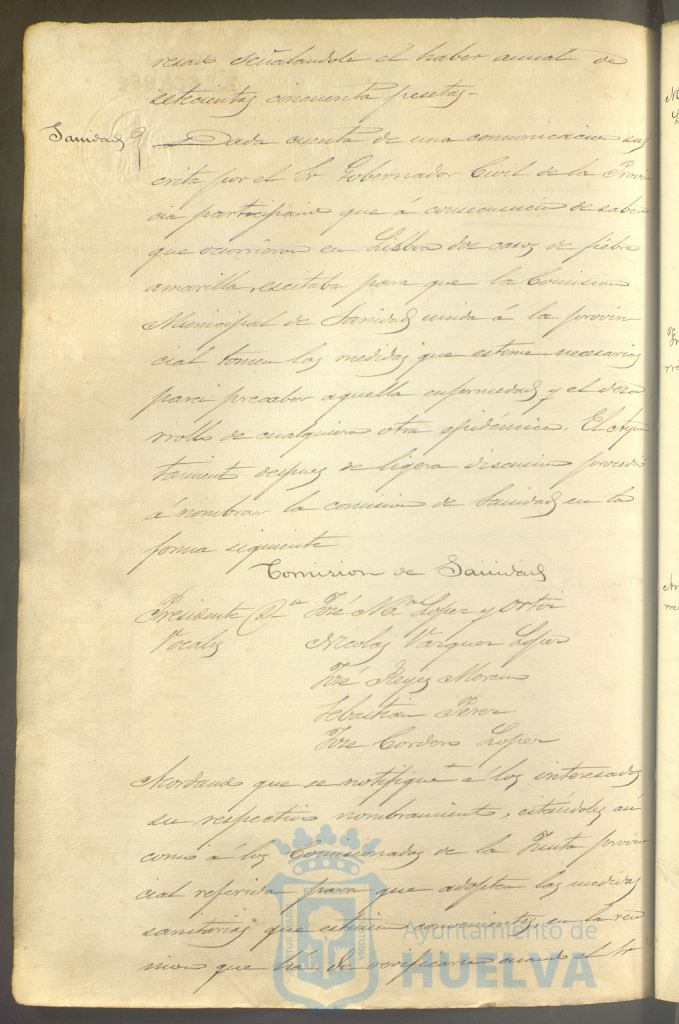 resado señalandole el haber anual de
setecientas cincuenta pesetas-
Sanidad
Dada cuenta de una comunicacion sus
crita por el Sr Gobernador Civil de la Provin
cia participando que á consecuencia de saber
que ocurrieron en Lisboa dos casos de fiebre
amarilla, escitaba para que la Comision
Municipal de Sanidad unida á la provin
cial tomen las medidas que estime necesarias
para precaber aquella enfermedad y el desa
rrollo de cualquiera otra epidémica. El Ayun
tamiento despues de ligera discusion procedió
á nombrar la comision de Sanidad en la
forma siguiente
Comision de Sanidad
Presidente Dn José Mª Lopez y Ortiz
Vocales Nicolas Vazquez Lopez
José Reyes Moreno
Sebastian Perez
Jose Cordero Lopez
Acordando que se notifique á los interesados
su respectivo nombramiento, citandoles asi
como á los Comisionados de la Junta provin
cial referida para que adopten las medidas
sanitarias que estimen convenientes, en la reu
nion que ha de verificarse cuando el Sr
Ayuntamiento de
HUELVA